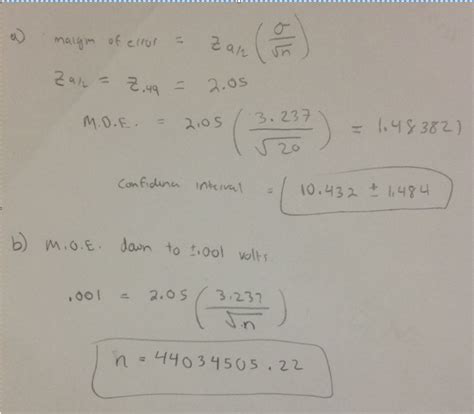 a) margin of error = Z a/2 (σ/√n)
Z a/2 = Z.49 = 2.05
M.O.E. = 2.05 (3.237/√20) = 1.483821
Confidence interval = 10.432 ± 1.484
b) M.O.E. down to ±.001 volts.
.001 = 2.05 (3.237/√n)
n = 44034505.22